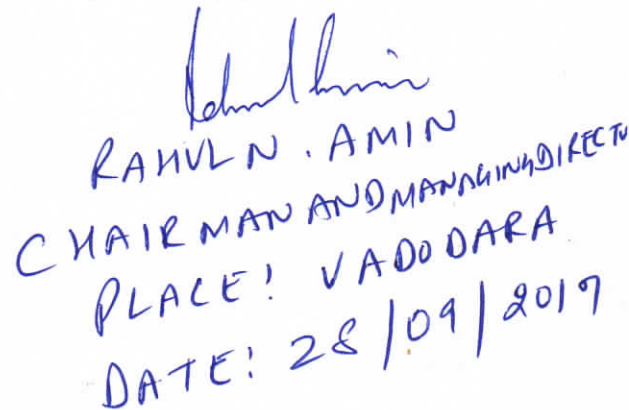 RAHUL N. AMIN
CHAIRMAN AND MANAGING DIRECTO
PLACE: VADODARA
DATE: 28/09/2017